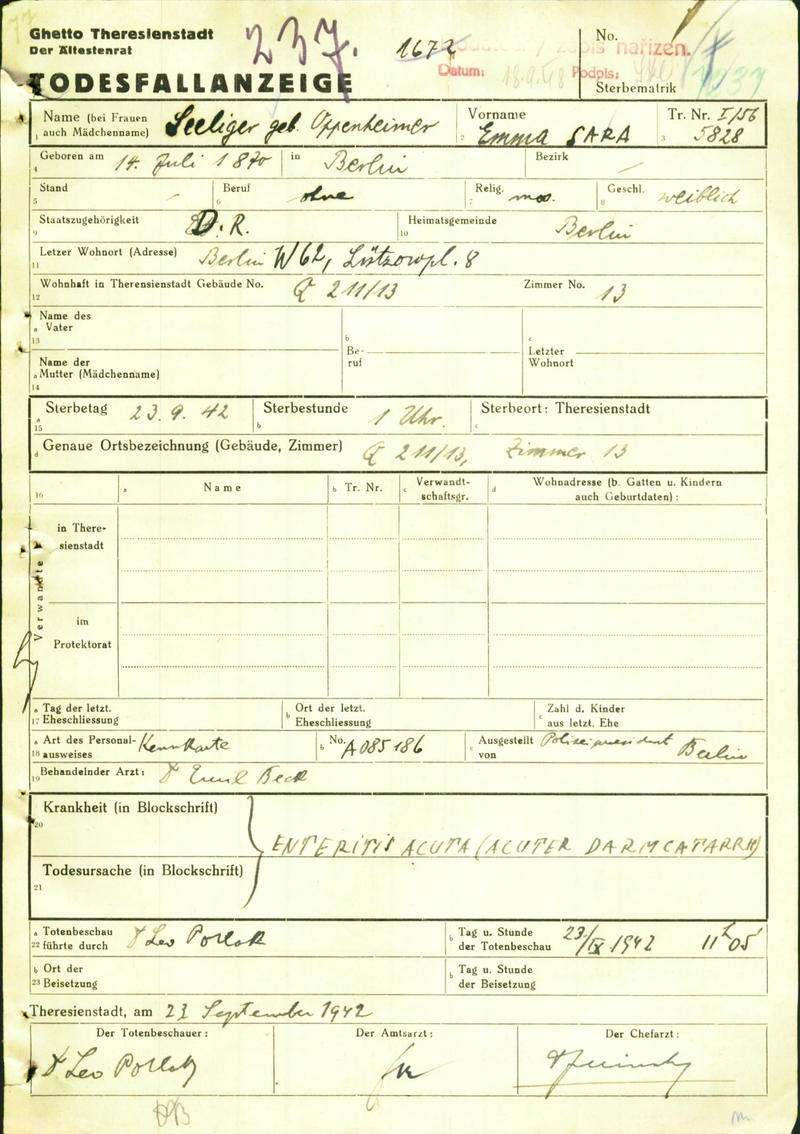 Ghetto Theresienstadt
Der Ältestenrat
TODESFALLANZEIGE
237.
1672
zápis nařízen.
Datum: 18.9.48 Podpis:
No.
Sterbematrik
Name (bei Frauen auch Mädchenname) Seeliger geb. Oppenheimer
1
Vorname Emma SARA
2
Tr. Nr. I/56
5828
3
Geboren am 14. Juli 1870 in Berlin Bezirk —
4
Stand - Beruf ohne Relig. mos. Geschl. weiblich
5 6 7 8
Staatszugehörigkeit D.R. Heimatsgemeinde Berlin
9 10
Letzer Wohnort (Adresse) Berlin W62, Lützowpl. 8
11
Wohnhaft in Therensienstadt Gebäude No. Q 211/13 Zimmer No. 13
12
Name des Vater
a 13
b Beruf
c Letzter Wohnort
Name der Mutter (Mädchenname)
a 14
Sterbetag 23.9.42 Sterbestunde 1 Uhr. Sterbeort: Theresienstadt
a 15 b c
Genaue Ortsbezeichnung (Gebäude, Zimmer) Q 211/13, Zimmer 13
d
16 a Name b Tr. Nr. c Verwandtschaftsgr. d Wohnadresse (b. Gatten u. Kindern auch Geburtdaten):
Verwandte
in Theresienstadt
im Protektorat
a 17 Tag der letzt. Eheschliessung b Ort der letzt. Eheschliessung c Zahl d. Kinder aus letzt. Ehe
a 18 Art des Personalausweises Kennkarte b No. A085186 c Ausgestellt von Polizeipräsident Berlin
19 Behandelnder Arzt: Dr Emil Beck
Krankheit (in Blockschrift)
20
ENTERITIS ACUTA (ACUTER DARMCATARRH)
Todesursache (in Blockschrift)
21
a 22 Totenbeschau führte durch Dr Leo Pollak b Tag u. Stunde der Totenbeschau 23/IX 1942 11h05
b 23 Ort der Beisetzung b Tag u. Stunde der Beisetzung
Theresienstadt, am 23 September 1942
Der Totenbeschauer: Der Amtsarzt: Der Chefarzt:
Dr Leo Pollak